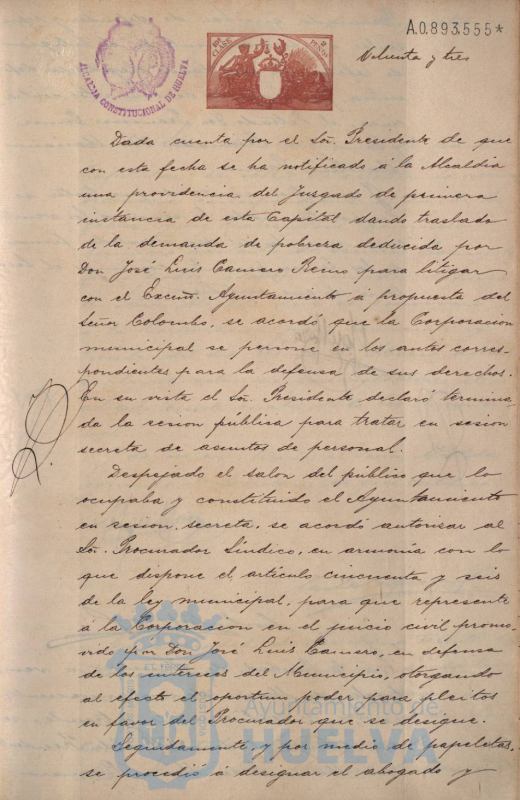 A.0.893.555*
10ª CLASE
2 PESETAS
ALCALDIA CONSTITUCIONAL DE HUELVA
Ochenta y tres
Dada cuenta por el Sor. Presidente de que
con esta fecha se ha notificado á la Alcaldia
una providencia del Juzgado de primera
instancia de esta Capital dando traslado
de la demanda de pobreza deducida por
Don José Luis Camero Reino para litigar
con el Excmo. Ayuntamiento á propuesta del
Señor Colombo, se acordó que la Corporacion
municipal se persone en los autos corres-
pondientes para la defensa de sus derechos.
En su vista el Sor. Presidente declaró termina-
da la sesion pública para tratar en sesion
secreta de asuntos de personal.
Despejado el salon del público que lo
ocupaba y constituido el Ayuntamiento
en sesion secreta, se acordó autorisar al
Sor. Procurador Sindico, en armonía con lo
que dispone el artículo cincuenta y seis
de la ley municipal, para que represente
á la Corporacion en el juicio civil promo-
vido por Don José Luis Camero, en defensa
de los intereses del Municipio, otorgando
al efecto el oportuno poder para pleitos
en favor del Procurador que se designe.
Seguidamente, y por medio de papeletas,
se procedió á designar el abogado y
Ayuntamiento de
HUELVA